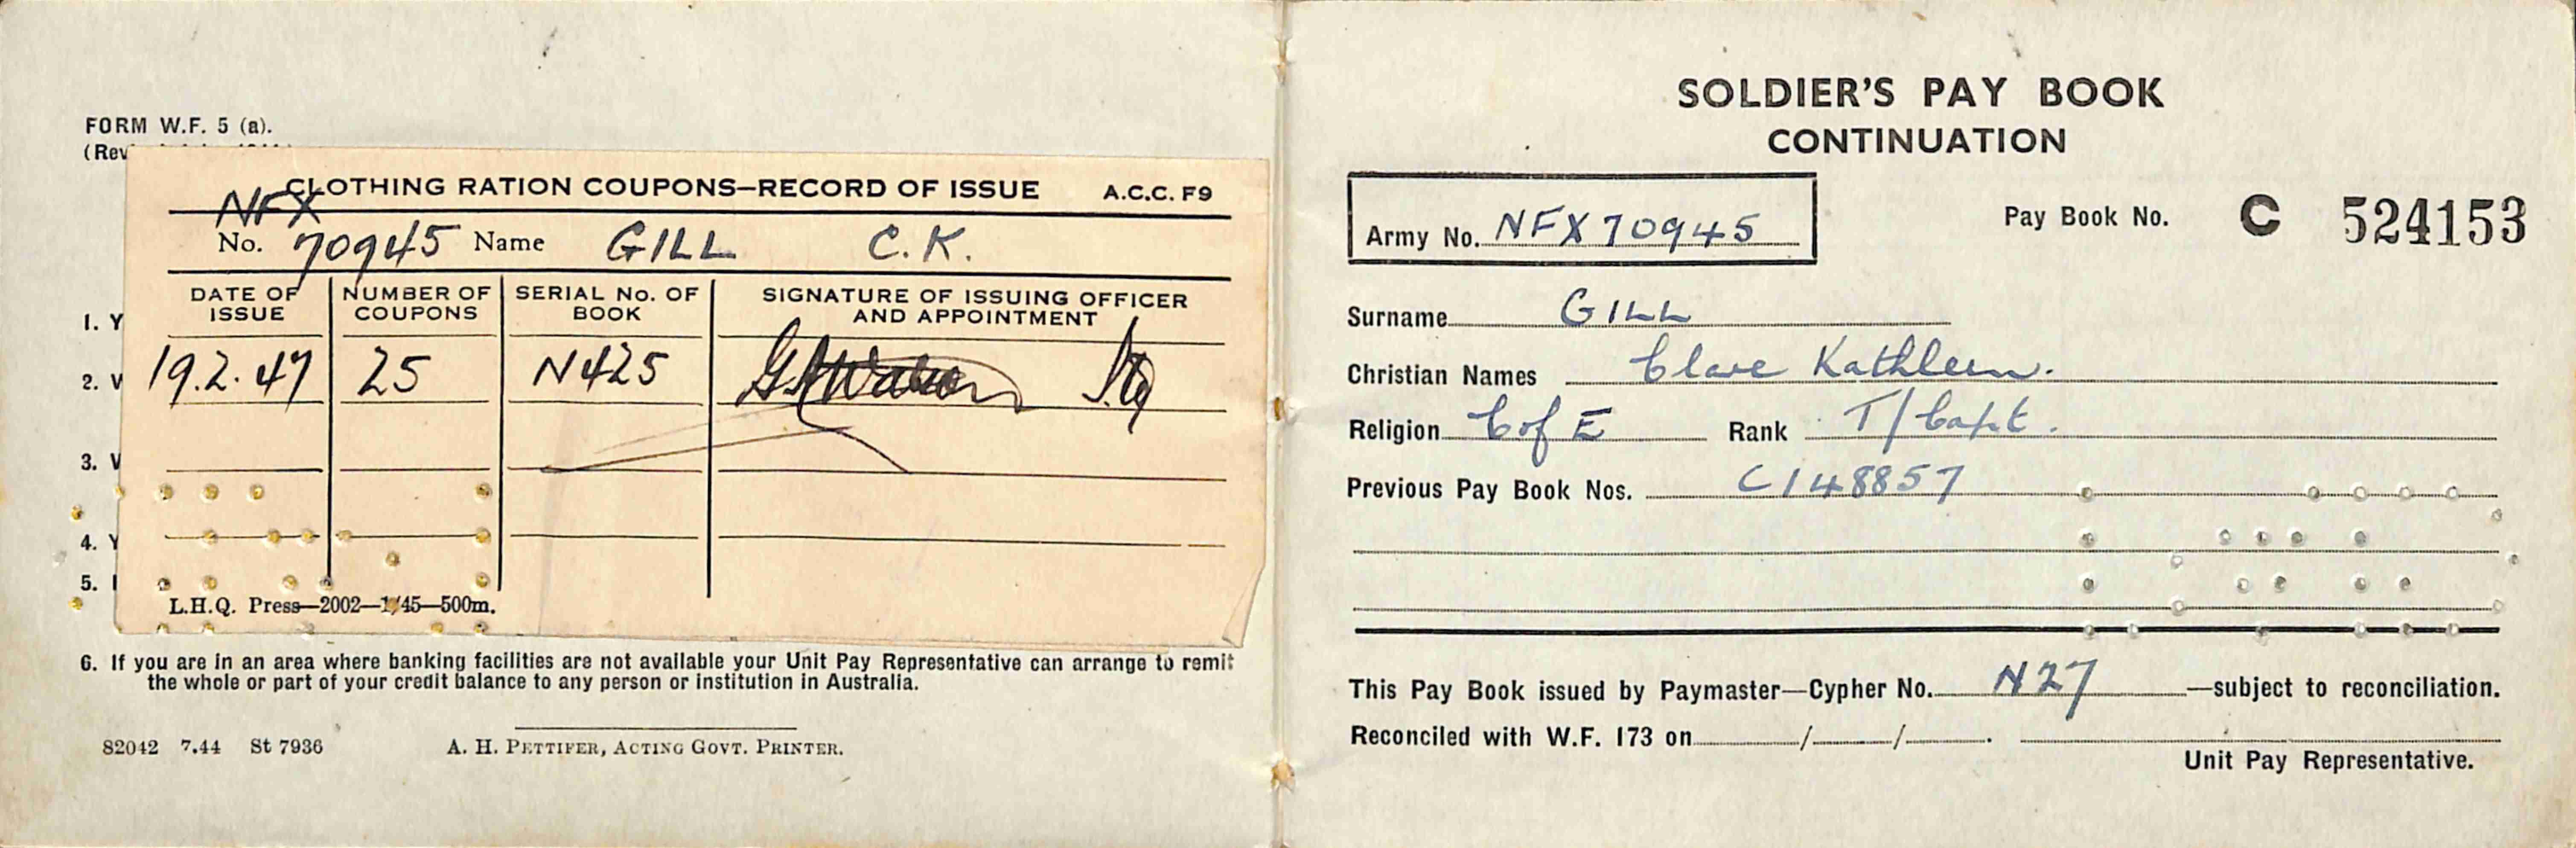 FORM W.F. 5 (a).
(Rev
CLOTHING RATION COUPONS—RECORD OF ISSUE A.C.C. F9
NFX
No. 70945 Name GILL C.K.
DATE OF ISSUE NUMBER OF COUPONS SERIAL No. OF BOOK SIGNATURE OF ISSUING OFFICER AND APPOINTMENT
19.2.47 25 N425
L.H.Q. Press—2002—1/45—500m.
1. Y
2. V
3. V
4. Y
5. I
6. If you are in an area where banking facilities are not available your Unit Pay Representative can arrange to remit
the whole or part of your credit balance to any person or institution in Australia.
82042 7.44 St 7936 A. H. PETTIFER, ACTING GOVT. PRINTER.
SOLDIER'S PAY BOOK
CONTINUATION
Army No. NFX70945 Pay Book No. C 524153
Surname GILL
Christian Names Clare Kathleen.
Religion C of E Rank T/Capt.
Previous Pay Book Nos. C148857
This Pay Book issued by Paymaster—Cypher No. N27 —subject to reconciliation.
Reconciled with W.F. 173 on / / .
Unit Pay Representative.